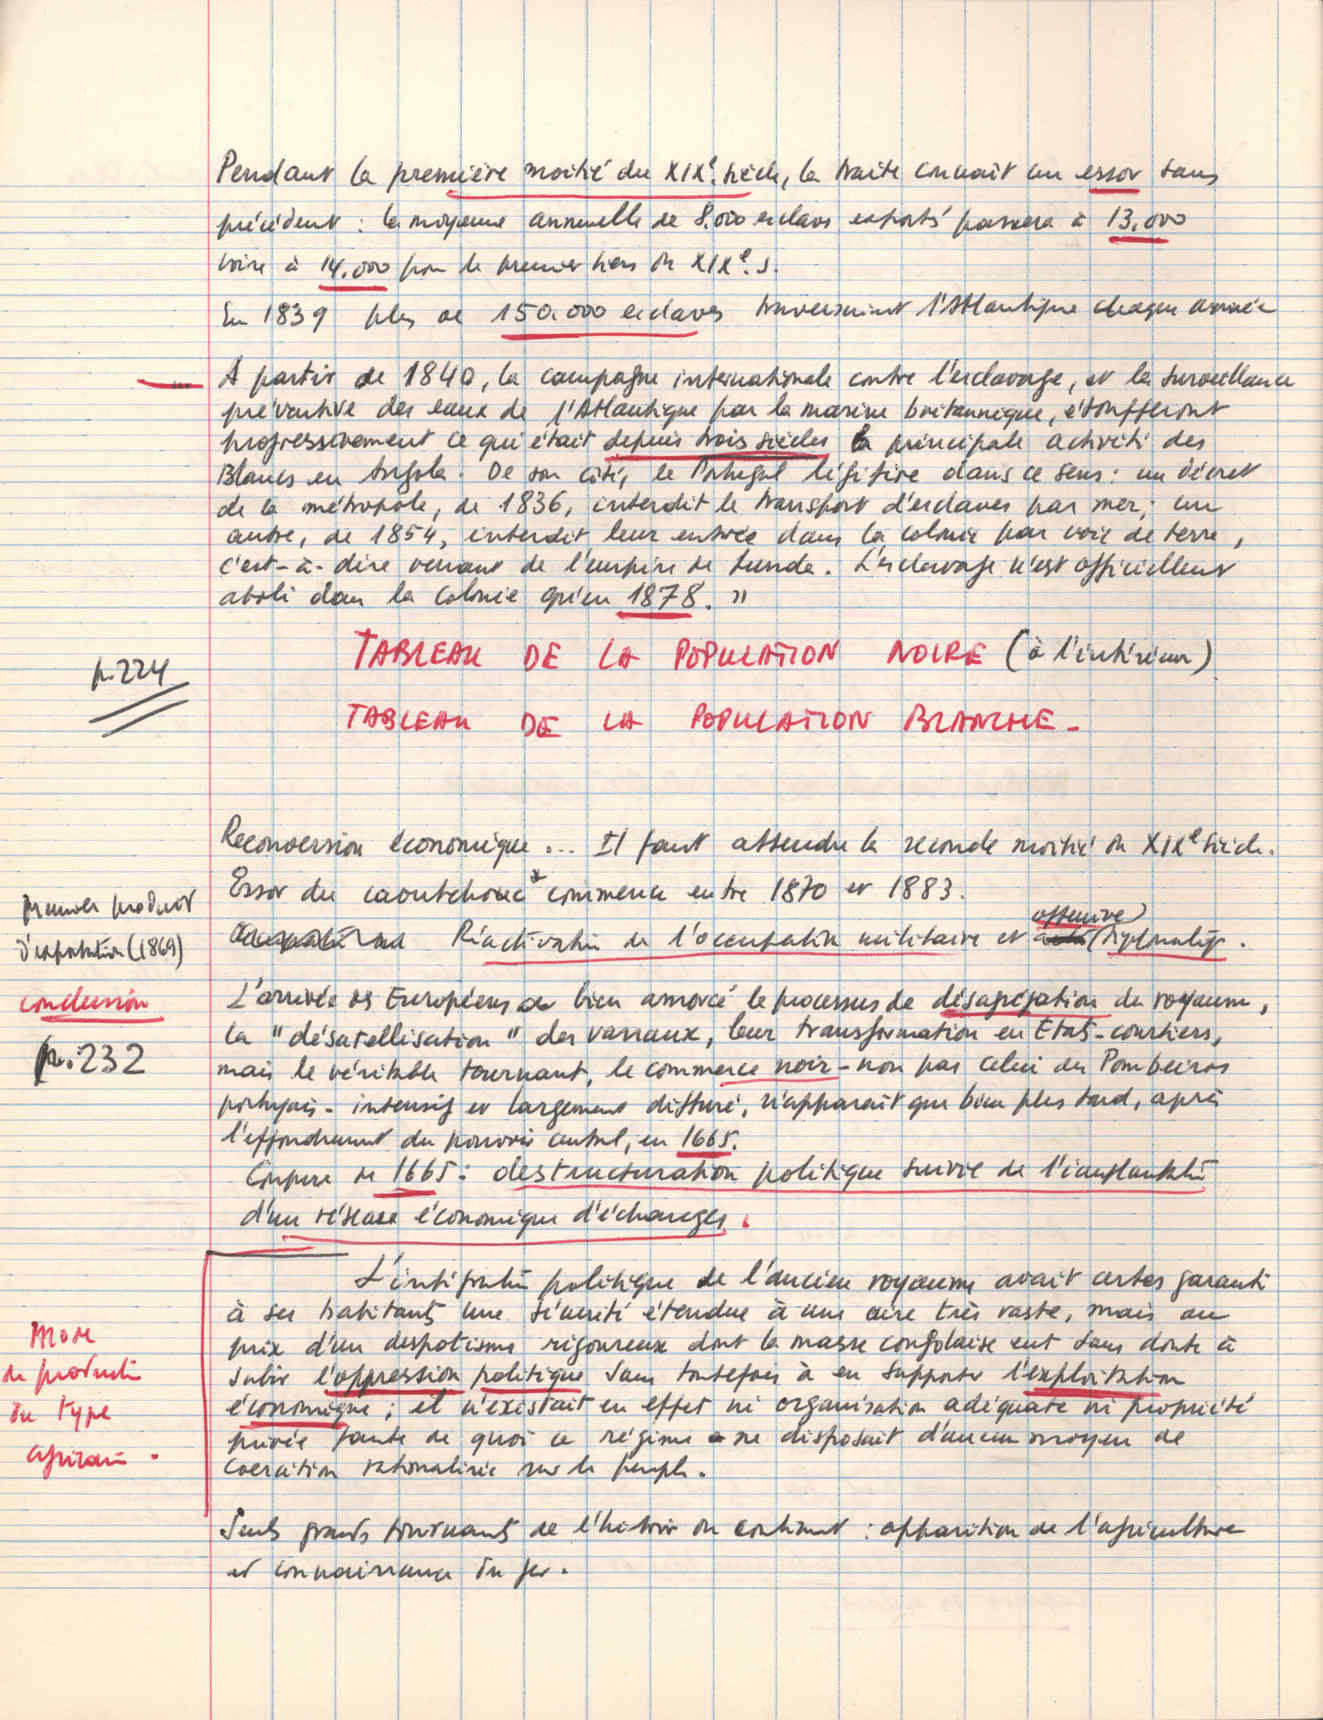 Pendant la première moitié du XIXe. siècle, la traite connait un essor sans
précédent : la moyenne annuelle de 8.000 esclaves exportés passera à 13.000
voire à 14.000 pour le premier tiers du XIXe. s.
En 1839 plus de 150.000 esclaves traversaient l'Atlantique chaque année
A partir de 1840, la campagne internationale contre l'esclavage, et la surveillance
préventive des eaux de l'Atlantique par la marine britannique, étoufferont
progressivement ce qui était depuis trois siècles la principale activité des
Blancs en Angola. De son côté, le Portugal légifère dans ce sens : un décret
de la métropole, de 1836, interdit le transport d'esclaves par mer ; un
autre, de 1854, interdit leur entrée dans la colonie par voie de terre,
c'est-à-dire venant de l'empire de Lunda. L'esclavage n'est officiellement
aboli dans la colonie qu'en 1878. »
p.224
TABLEAU DE LA POPULATION NOIRE (à l'intérieur)
TABLEAU DE LA POPULATION BLANCHE -
Reconversion économique ... Il faut attendre la seconde moitié du XIXe siècle.
Essor du caoutchouc* commence entre 1870 et 1883.
premier produit
d'exportation (1869)
offensive
Réactivation de l'occupation militaire et diplomatiq.
conclusion
p. 232
L'arrivée des Européens a bien amorcé le processus de désagrégation du royaume,
la "désatellisation" des vassaux, leur transformation en Etats-courtiers,
mais le véritable tournant, le commerce noir - non pas celui des Pombeiros
portugais - intensif et largement diffusé, n'apparait que bien plus tard, après
l'effondrement du pouvoir central, en 1665.
Coupure de 1665 : destructuration politique suivie de l'implantation
d'un réseau économique d'échanges.
Mode
de production
du type
africain.
L'intégration politique de l'ancien royaume avait certes garanti
à ses habitants une sécurité étendue à une aire très vaste, mais au
prix d'un despotisme rigoureux dont la masse congolaise eut sans doute à
subir l'oppression politique sans toutefois à en supporter l'exploitation
économique ; il n'existait en effet ni organisation adéquate ni propriété
privée faute de quoi ce régime ne disposait d'aucun moyen de
coercition rationalisée sur le peuple.
Seuls grands tournants de l'histoire du continent : apparition de l'agriculture
et connaissance du fer.